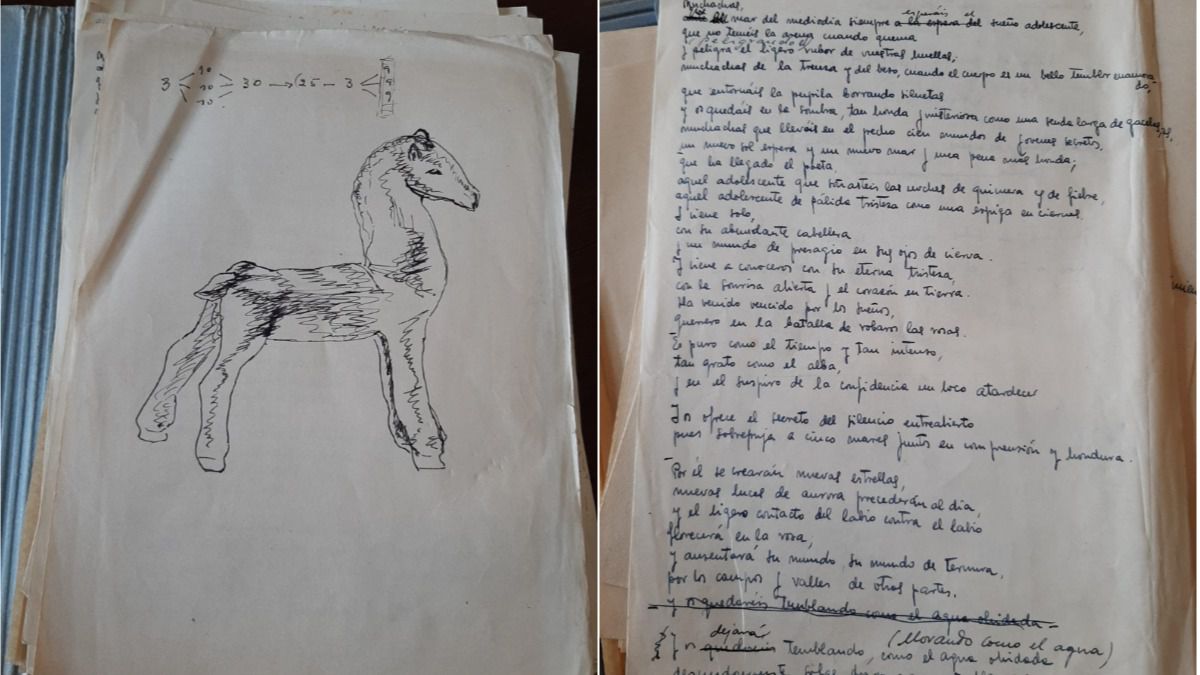 3 < 10 10 10 > 30 → 25 - 3 <
Muchachas,
mar del mediodia siempre a la espera del esperáis el sueño adolescente,
que no teméis la arena cuando quema
y peligra peligrando el ligero rubor de vuestras huellas;
muchachas de la trenza y del beso, cuando el cuerpo es un bello temblor enamorado,
que entornáis la pupila borrando siluetas
y os quedáis en la sombra, tan honda y misteriosa como una senda larga de gacelas,
muchachas que lleváis en el pecho cien mundos de jóvenes secretos,
un nuevo sol espera y un nuevo mar y una pena más honda;
que ha llegado el poeta,
aquel adolescente que soñasteis las noches de quimera y de fiebre,
aquel adolescente de pálida tristeza como una espiga en ciernes.
Y viene solo,
con su abundante cabellera
y un mundo de presagio en sus ojos de cierva.
Y viene a conoceros con su eterna tristeza,
con la sonrisa abierta y el corazón en tierra.
Ha venido vencido por los sueños,
guerrero en la batalla de robaros las rosas.
Es puro como el tiempo y tan intenso,
tan grato como el alba,
y en el suspiro de la confidencia un loco atardecer
Y os ofrece el secreto del silencio entreabierto
pues sobrepuja a cinco mares juntos en comprensión y hondura.
Por él se crearán nuevas estrellas,
nuevas luces de aurora precederán al día,
y el ligero contacto del labio contra el labio
florecerá en la rosa,
y ausentará su mundo, su mundo de ternura,
por los campos y valles de otras partes.
y os quedaréis temblando como el agua olvidada
Y os quedaréis dejará temblando, como el agua olvidada (llorando como el agua)